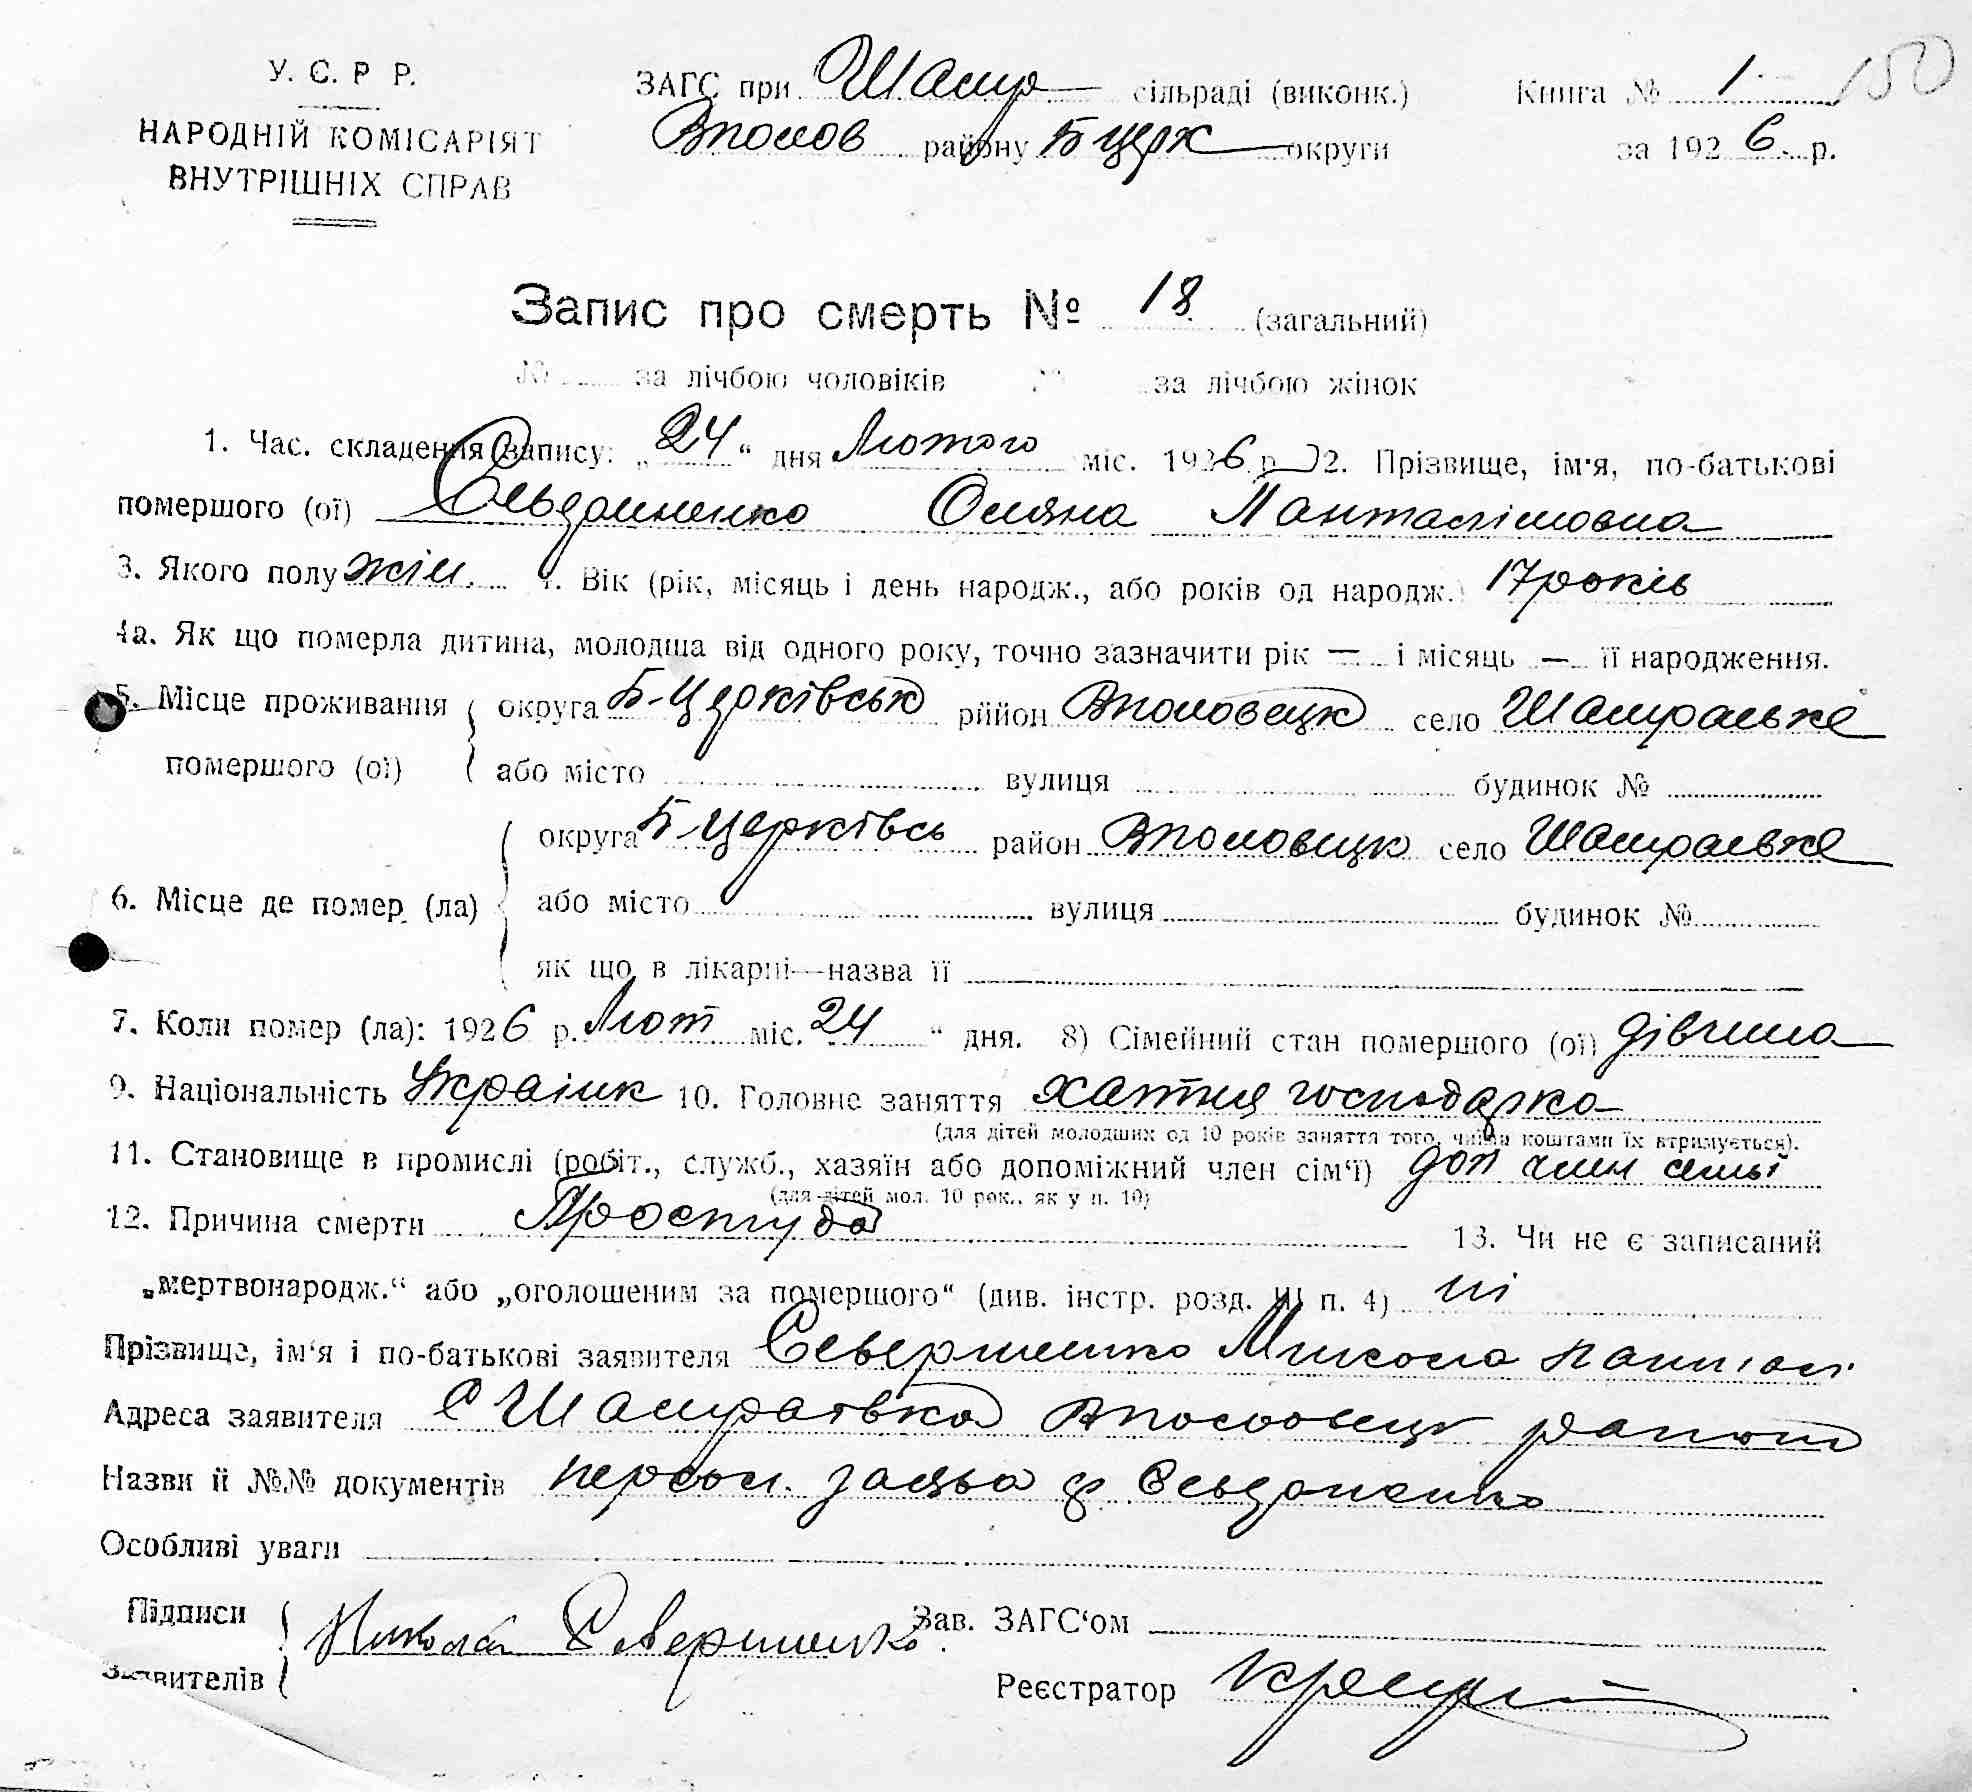 У. С. Р Р.
НАРОДНІЙ КОМІСАРІЯТ
ВНУТРІШНІХ СПРАВ
ЗАГС при Шамр сільраді (виконк.)
Вполов району Б Церк округи
Книга № 1 150
за 1926 р.
Запис про смерть № 18 (загальний)
№ за лічбою чоловіків за лічбою жінок
1. Час. складення запису: „24“ дня Лютого міс. 1926 р. 2. Прізвище, ім'я, по-батькові
помершого (ої) Оляна Панталімовна
3. Якого полу жін. 4. Вік (рік, місяць і день народж., або років од народж.) 17 років
4а. Як що померла дитина, молодша від одного року, точно зазначити рік — і місяць — її народження.
5. Місце проживання помершого (ої) округа Б-Церківськ район Вполовецк село
або місто вулиця будинок №
6. Місце де помер (ла) округа Б-Церківсь район Вполовецк село
або місто вулиця будинок №
як що в лікарні—назва її
7. Коли помер (ла): 1926 р. Лют міс. 24 “ дня. 8) Сімейний стан помершого (ої) дівчина
9. Національність Украінк 10. Головне заняття хатня господарка
(для дітей молодших од 10 років заняття того, чиїми коштами їх втримується).
11. Становище в промислі (робіт., служб., хазяїн або допоміжний член сім'ї) доп член семьі
(для дітей мол. 10 рок., як у п. 10)
12. Причина смерти Простуда 13. Чи не є записаний
„мертвонародж.“ або „оголошеним за помершого“ (див. інстр. розд. III п. 4) ні
Прізвище, ім'я і по-батькові заявителя Севериненко Микола
Адреса заявителя С Шамраівка Вполовецк району
Назви й №№ документів персон. заява
Особливі уваги
Підписи Заявителів Николай Севериненко
Зав. ЗАГС'ом
Реєстратор